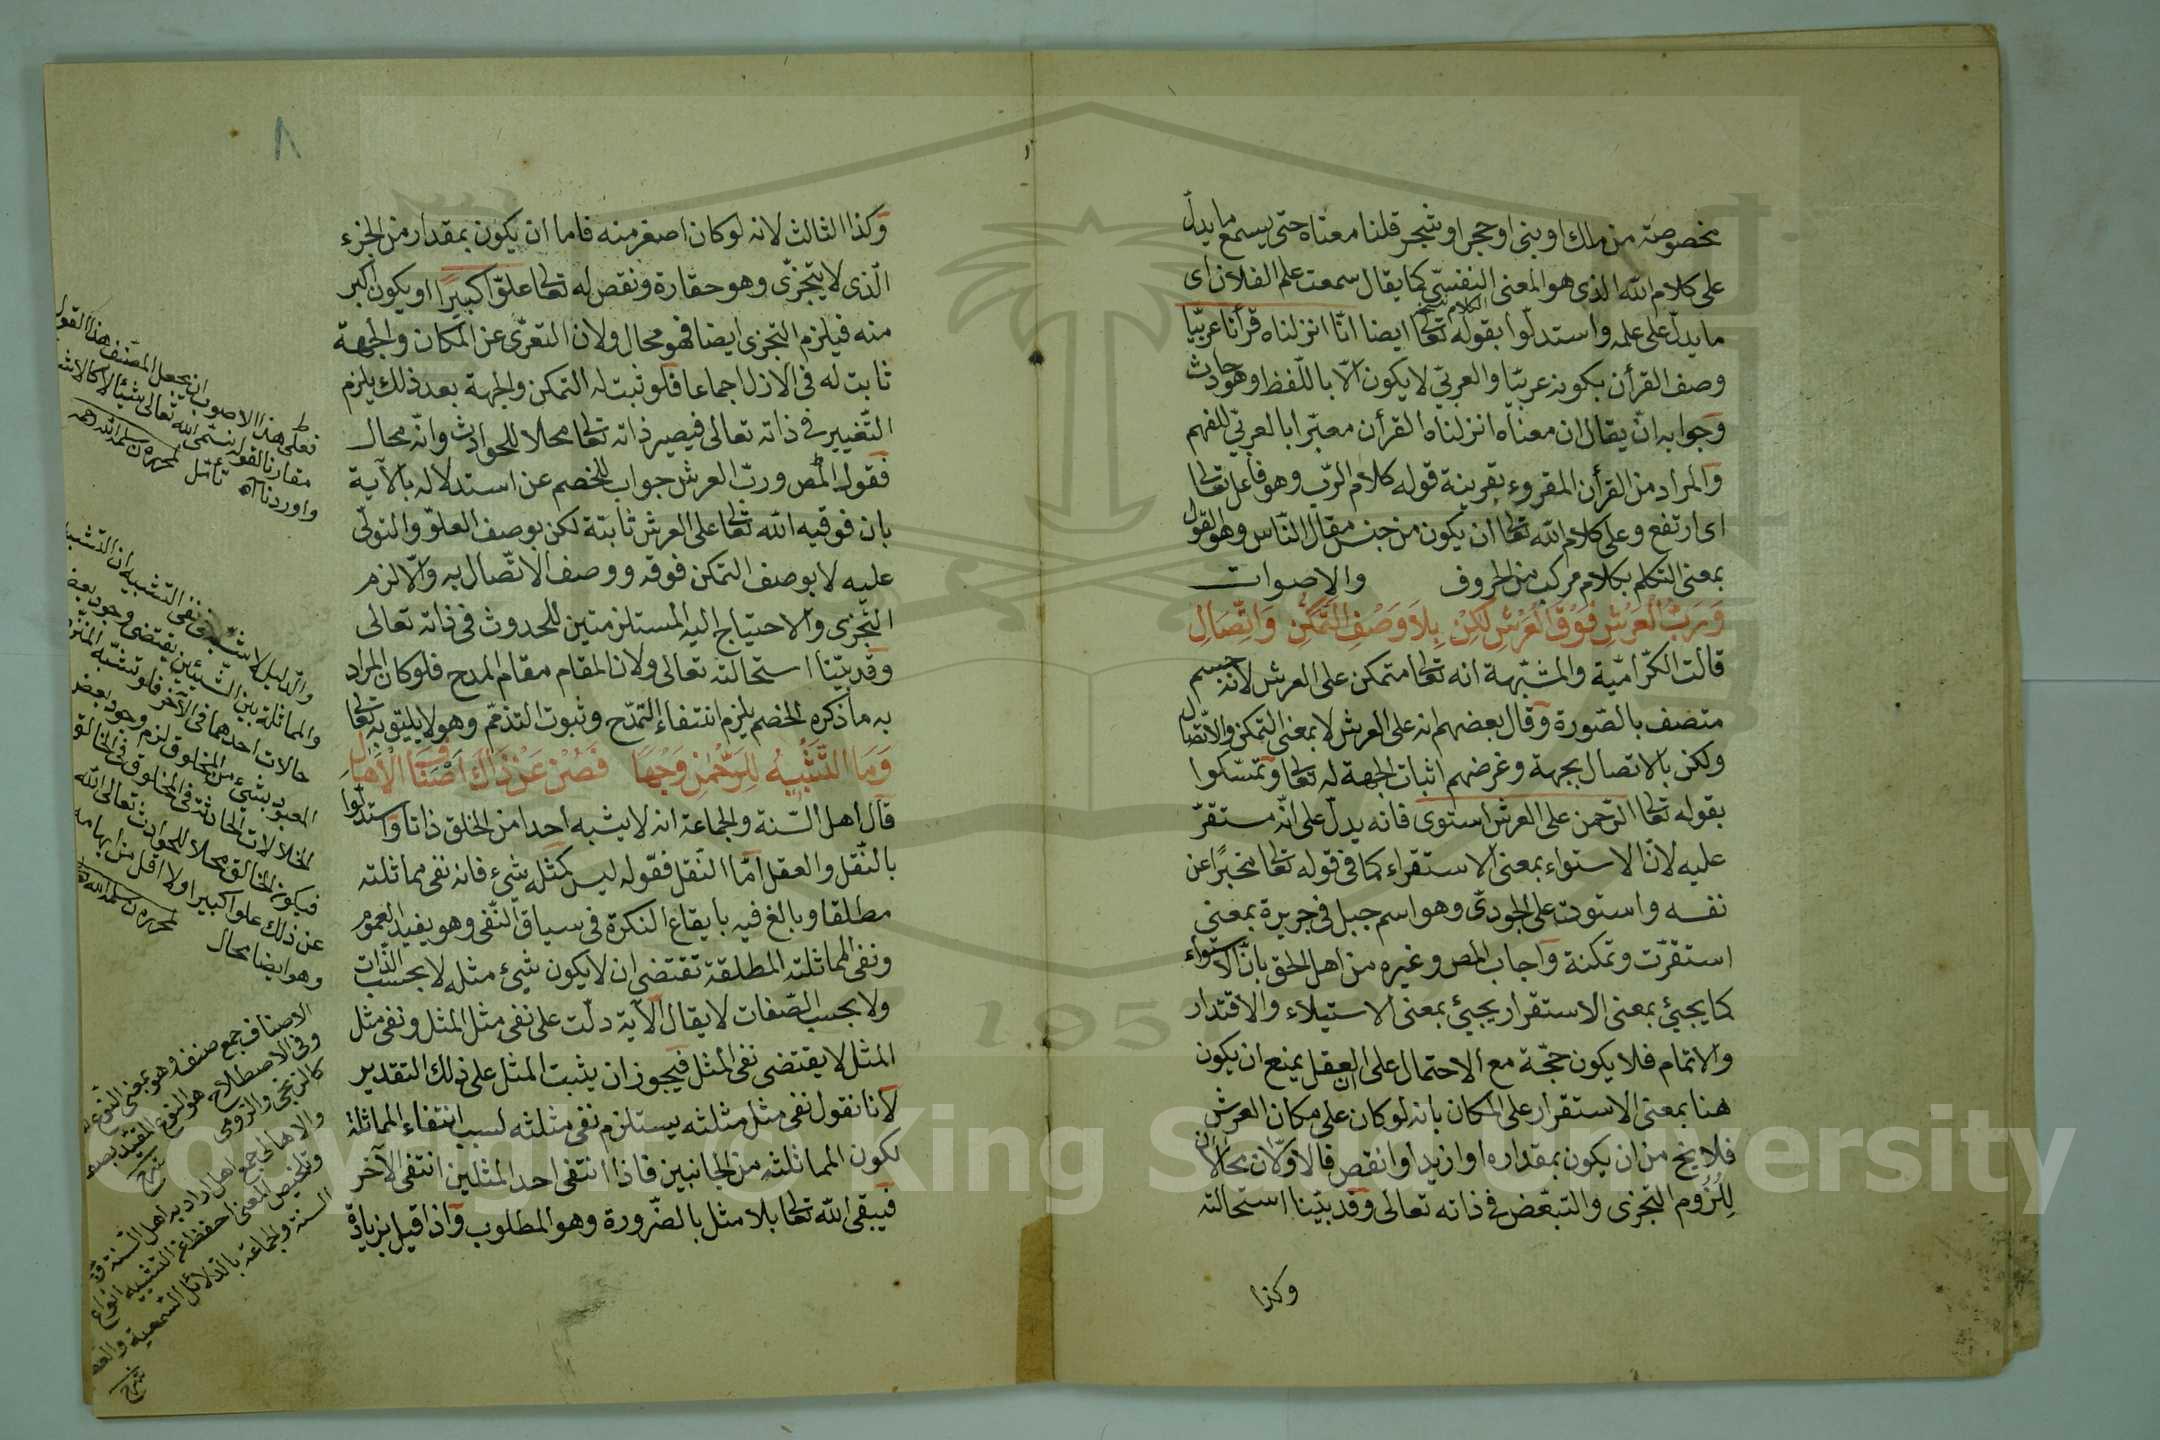 مخصوصة من ملك او بنى او حجر او شجر قلنا معناه حتى يسمع ما يدلّ
على كلام الله الذى هو المعنى النفسىّ كما يقال سمعت علم الفلان اى
ما يدلّ على علمه واستدلّوا بقوله تعا ايضا انّا انزلناه قرأنا عربيّا
وصف القرأن بكونه عربيّا والعربىّ لا يكون الّا باللّفظ وهو حادث
وجوابه انّ يقال ان معناه انزلناه القرأن معبّرا بالعربىّ للفهم
والمراد من القرأن المقروء بقرينة قوله كلام الرّب وهو فاعل تعا
اى ارتفع وعلى كلام الله تعا ان يكون من جنس مقال النّاس وهو القول
بمعنى التكلم بكلام مركب من الحروف والاصوات
وَرَبُّ الْعَرْشِ فَوْقَ الْعَرْشِ لَكِنْ بِلَا وَصْفِ التَّمَكُّنِ وَاتِّصَالِ
قالت الكرّاميّة والمشبّهة انه تعا متمكن على العرش لانّه جسم
متصف بالصّورة وقال بعضهم انه على العرش لا بمعنى التمكن والاتّصال
ولكن بالاتصال بجهة وغرضهم اثبات الجهة له تعا وتمسّكوا
بقوله تعا الرّحمن على العرش استوى فانه يدلّ على انّه مستقرّ
عليه لانّ الاستواء بمعنى الاستقراء كما فى قوله تعا مخبرًا عن
نفسه واستودته على الجودىّ وهو اسم جبل فى جريرة بمعنى
استقرّت وتمكنة واجاب المص وغيره من اهل الحق بانّ الاستواء
كما يجيئ بمعنى الاستقرار يجيئ بمعنى الاستيلاء والاقتدار
والاتمام فلا يكون حجّة مع الاحتمال على ان العقل يمنع ان يكون
هنا بمعنى الاستقرار على المكان بانه لو كان على مكان العرش
فلا يخ من ان يكون بمقداره او ازيد او انقص فالاوّلان محالان
لِلُزُوم التجزى والتبعّض فى ذاته تعالى وقد بيّنا استحالته
وكذا
٨
وكذا الثالث لانه لو كان اصغر منه فاما ان يكون بمقدار من الجزء
الّذى لا يتجزّى وهو حقارة ونقص له تعا علوّا كبيرًا او يكون اكبر
منه فيلزم التجزى ايضا فهو محال ولان التعرّى عن المكان والجهة
ثابت له فى الازل اجماعا فلو ثبت له التمكن والجهة بعد ذلك يلزم
التّغيير فى ذاته تعالى فيصير ذاته تعا محلا للحوادث وانّه محال
فقول المص وربّ العرش جواب للخصم عن استدلاله بالآية
بان فوقيه الله تعا على العرش ثابتة لكن بوصف العلوّ والتولّى
عليه لا بوصف التمكن فوقه ووصف الاتّصال به والّا لزم
التّجزى والاحتياج اليه المستلزمتين للحدوث فى ذاته تعالى
وقد بيّنا استحالته تعالى ولان المقام مقام المدح فلو كان المراد
به ما ذكره الخصم يلزم انتفاء التمدّح وثبوت التذمّم وهو لا يليق به تعا
وَمَا التَّشْبِيهُ لِلرَّحْمٰنِ وَجْهًا فَصُنْ عَنْ ذَاكَ اَصْنَافَ الْاَهَالِ
قال اهل السّنة والجماعة انه لا يشبه احدا من الخلق ذاتا واستدلّوا
بالنّقل والعقل امّا النّقل فقوله ليس كمثله شىء فانه نفى مماثلته
مطلقا وبالغ فيه بايقاع النكرة فى سياق النّفى وهو يفيد العموم
ونفى المماثلة المطلقة تقتضى ان لا يكون شيئ مثله لا بحسب الذّات
ولا بحسب الصّفات لا يقال الآية دلّت على نفى مثل المثل ونفى مثل
المثل لا يقتضى نفى المثل فيجوز ان يثبت المثل على ذلك التقدير
لانا نقول نفى مثل مثلثه يستلزم نفى مثلثه لسبب انتفاء المماثلة
لكون المماثلثه من الجانبين فاذا انتفى احد المثلين انتفى الآخر
فيبقى الله تعا بلا مثل بالضّرورة وهو المطلوب واذا قيل بزيادة
فعلى هذا الاصوب ان يجعل المصّنف هذا القول
مقارنا لقوله نسمّى الله تعالى شيئا لا كالاشيا
واوردناه تأمّل
والدليل لا شبهة فى نفى التشبيه ان التشبيه
والمماثلة بين الشيئين يقتضى وجود بعض
حالات احدهما فى الآخر فلو تشبّه
المعبود بشئ من المخلوق لزم وجود بعض
الحالات الحادثة فى المخلوق فى الخالق
فيكون الخالق محلا للحوادث تعالى الله
عن ذلك علوا كبيرا ولا اقل من ابهامه
وهو ايضا محال
الاصناف جمع صنف وهو بمعنى النّوع
وفى الاصطلاح هو النوع المقيّد بصف
كالزنجى والرومى شرح
والاهالى جمع اهل اراد به اهل السّنة
وتلخيص المعنى احفظ عن التشبيه انواع
السنة والجماعة بالدّلائل السّمعية والعق
شرح
Copyright © King Saud University
195